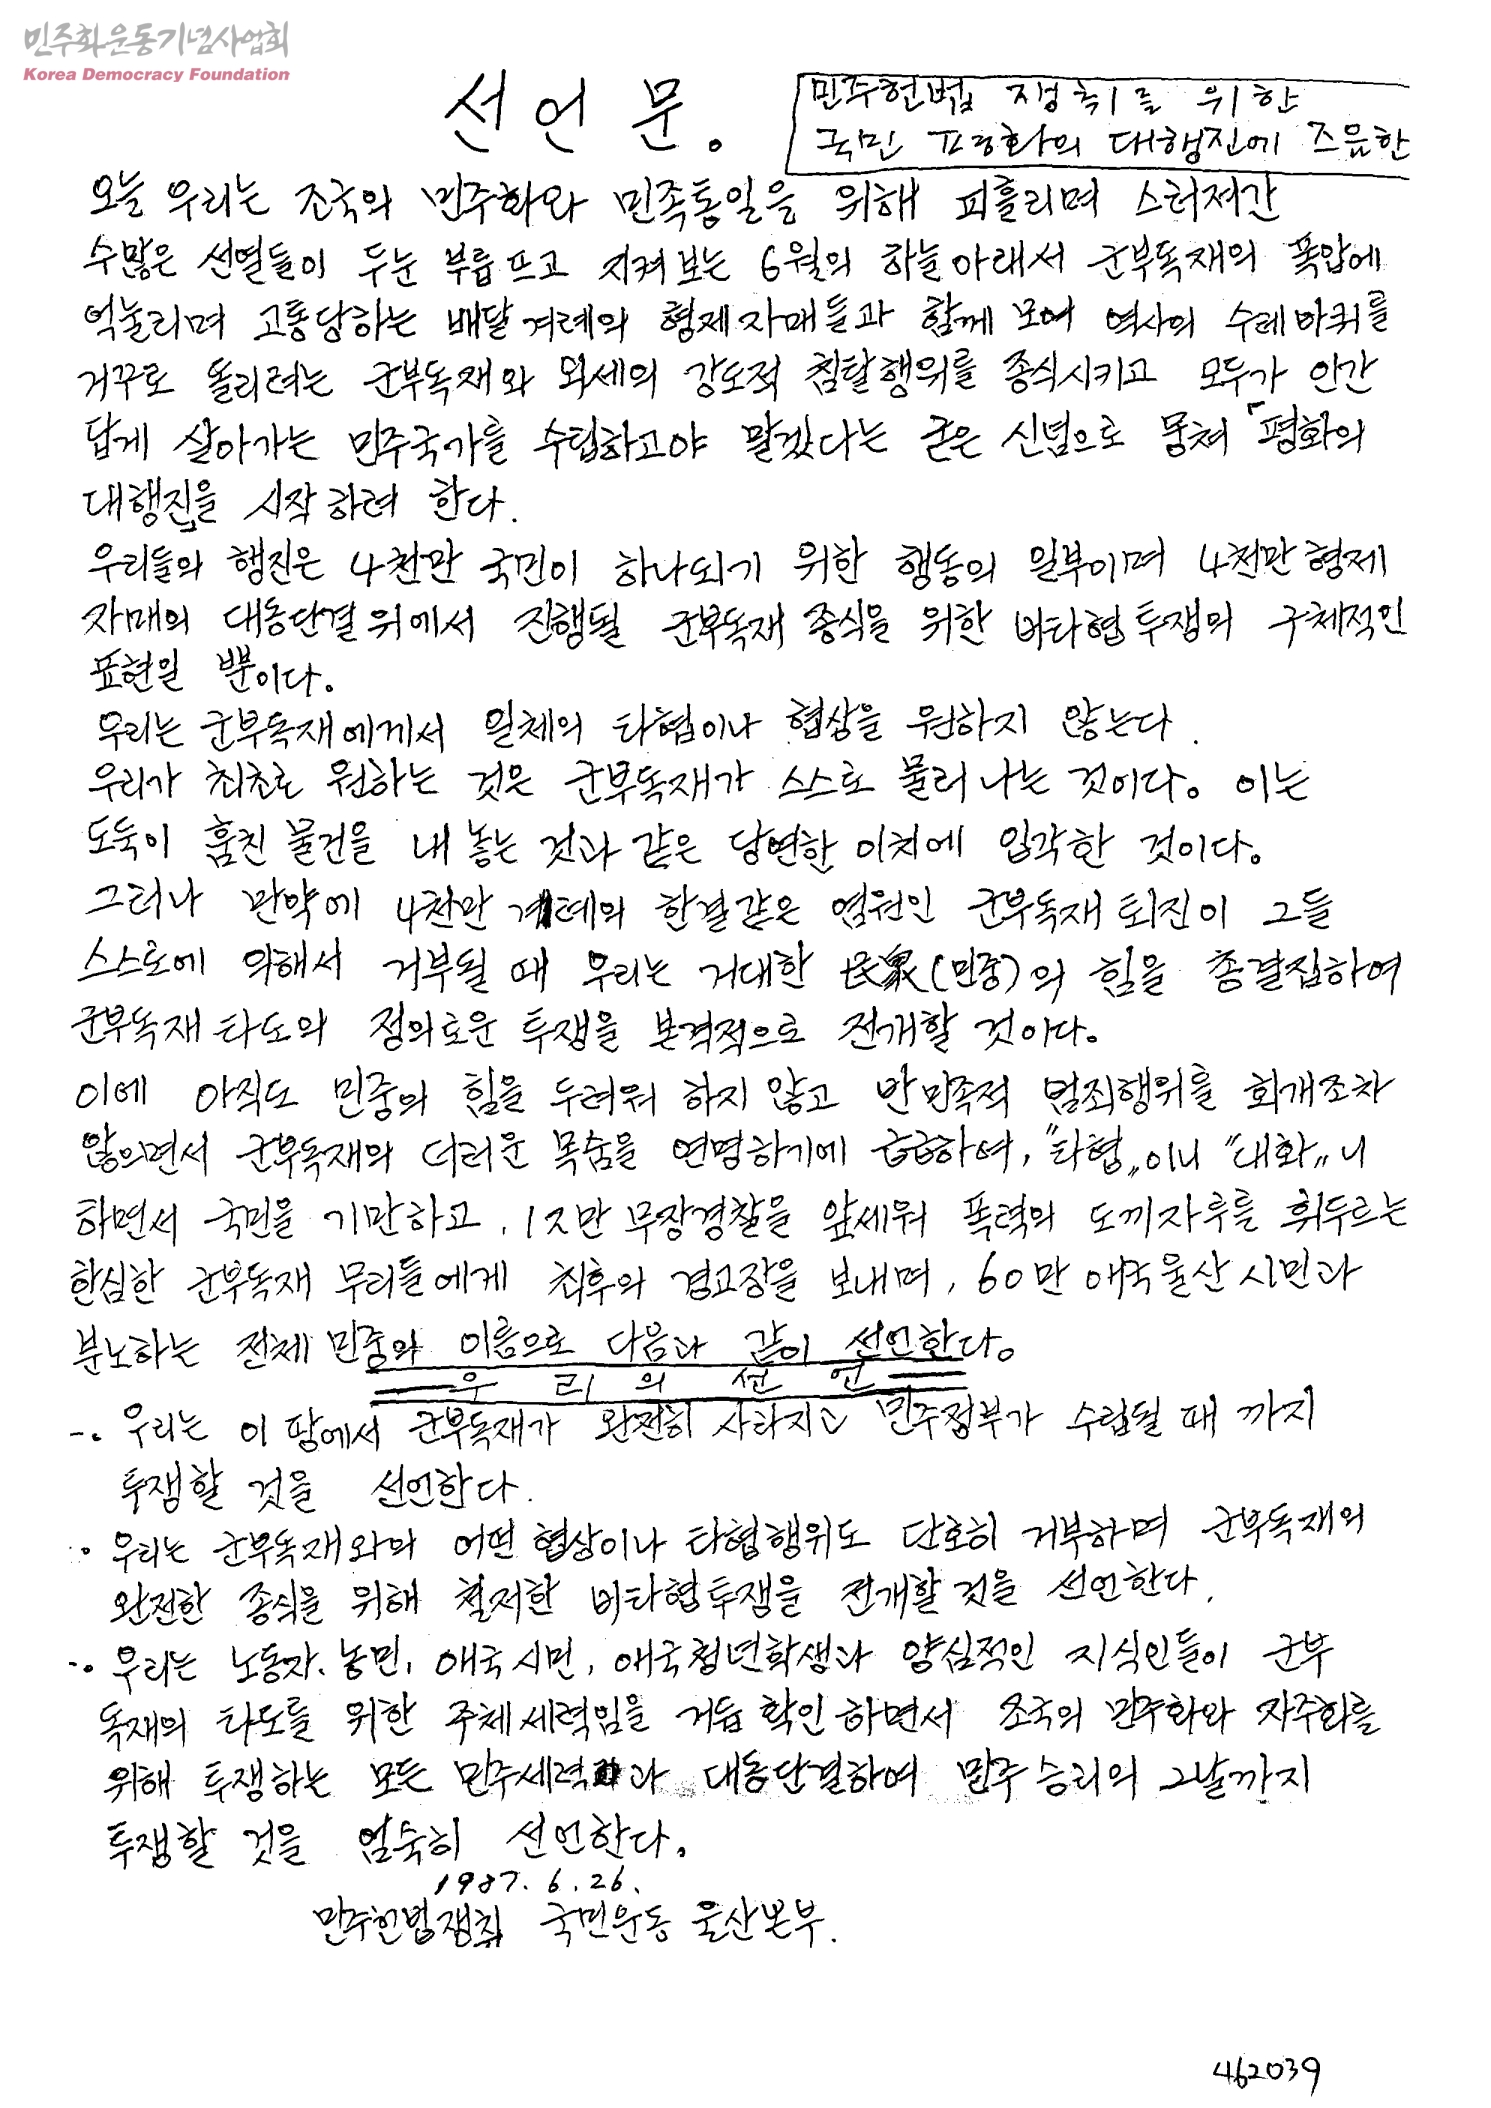 민주화운동기념사업회
Korea Democracy Foundation
선언문。
민주헌법 쟁취를 위한
국민 평화의 대행진에 즈음한
오늘 우리는 조국의 민주화와 민족통일을 위해 피흘리며 스러져간
수많은 선열들이 두눈 부릅뜨고 지켜보는 6월의 하늘아래서 군부독재의 폭압에
억눌리며 고통당하는 배달겨레의 형제자매들과 함께 모여 역사의 수레바퀴를
거꾸로 돌리려는 군부독재와 외세의 강도적 침탈행위를 종식시키고 모두가 인간
답게 살아가는 민주국가를 수립하고야 말겠다는 굳은 신념으로 뭉쳐 「평화의
대행진」을 시작하려 한다.
우리들의 행진은 4천만 국민이 하나되기 위한 행동의 일부이며 4천만형제
자매의 대동단결위에서 진행될 군부독재 종식을 위한 비타협투쟁의 구체적인
표현일 뿐이다。
우리는 군부독재에게서 일체의 타협이나 협상을 원하지 않는다.
우리가 최초로 원하는 것은 군부독재가 스스로 물러나는 것이다。 이는
도둑이 훔친 물건을 내놓는 것과 같은 당연한 이치에 입각한 것이다。
그러나 만약에 4천만 겨레의 한결같은 염원인 군부독재 퇴진이 그들
스스로에 의해서 거부될 때 우리는 거대한 民衆(민중)의 힘을 총결집하여
군부독재 타도의 정의로운 투쟁을 본격적으로 전개할 것이다。
이에 아직도 민중의 힘을 두려워 하지 않고 반민족적 범죄행위를 회개조차
않으면서 군부독재의 더러운 목숨을 연명하기에 급급하여, "타협"이니 "대화"니
하면서 국민을 기만하고, 12만 무장경찰을 앞세워 폭력의 도끼자루를 휘두르는
한심한 군부독재 무리들에게 최후의 경고장을 보내며, 60만 애국울산시민과
분노하는 전체 민중의 이름으로 다음과 같이 선언한다。
우리의 선언
-. 우리는 이 땅에서 군부독재가 완전히 사라지고 민주정부가 수립될 때 까지
투쟁할 것을 선언한다.
-. 우리는 군부독재와의 어떤 협상이나 타협행위도 단호히 거부하며 군부독재의
완전한 종식을 위해 철저한 비타협투쟁을 전개할것을 선언한다.
-. 우리는 노동자, 농민, 애국시민, 애국청년학생과 양심적인 지식인들이 군부
독재의 타도를 위한 주체세력임을 거듭 확인하면서 조국의 민주화와 자주화를
위해 투쟁하는 모든 민주세력과 대동단결하여 민주승리의 그날까지
투쟁할 것을 엄숙히 선언한다。
1987. 6. 26.
민주헌법쟁취 국민운동 울산본부.
462039